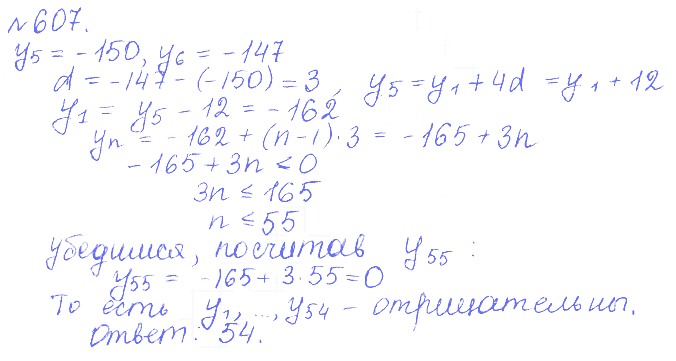 №607.
y₅ = -150, y₆ = -147
d = -147 - (-150) = 3, y₅ = y₁ + 4d = y₁ + 12
y₁ = y₅ - 12 = -162
yₙ = -162 + (n-1)·3 = -165 + 3n
-165 + 3n < 0
3n ≤ 165
n ≤ 55
Убедимся, посчитав y₅₅ :
y₅₅ = -165 + 3·55 = 0
То есть y₁, ..., y₅₄ - отрицательны.
Ответ: 54.